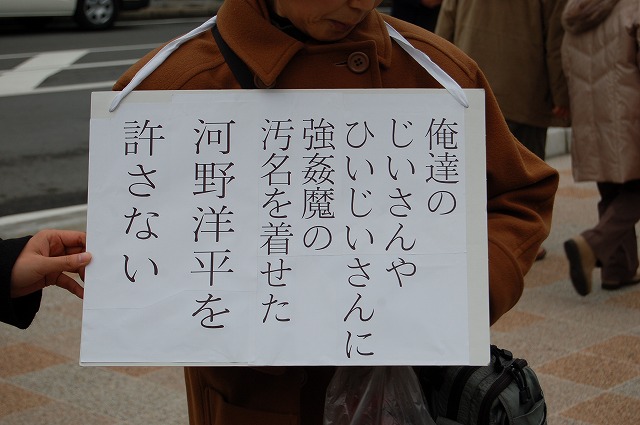 俺達の
じいさんや
ひいじいさんに
強姦魔の
汚名を着せた
河野洋平を
許さない